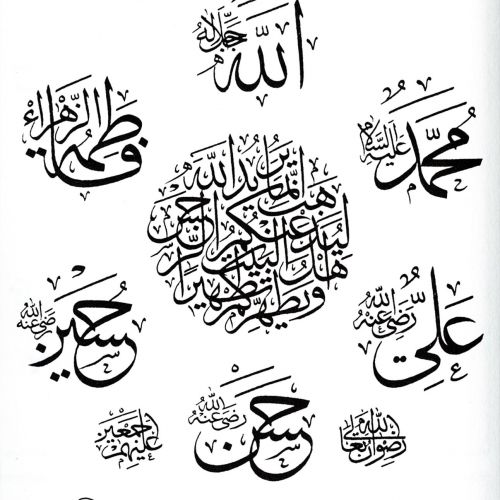 الله جل جلاله
محمد عليه السلام
فاطمة الزهراء
إنما يريد الله
ليذهب عنكم الرجس
أهل البيت
ويطهركم تطهيرا
علي رضي الله عنه
حسين رضي الله عنه
حسن رضي الله عنه
رضوان الله تعالى
عليهم أجمعين